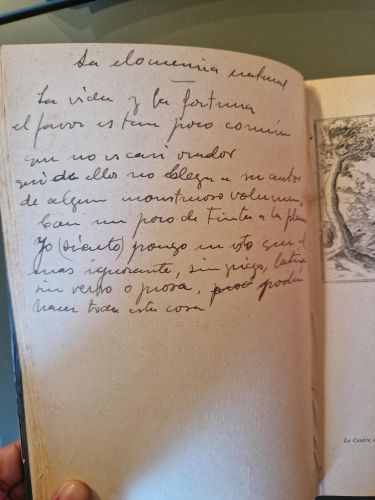 La elocuencia natural
La vida y la fortuna
el favor es tan poco común
que no es casi orador
que de ellos no llega a su autor
de algun monstruoso volumen,
Con un poco de tinta a la pluma
Yo (siento) pongo en esto que el
mas ignorante, sin griego, latin
sin verso o prosa, podria
hacer toda esta cosa
Le Cadre